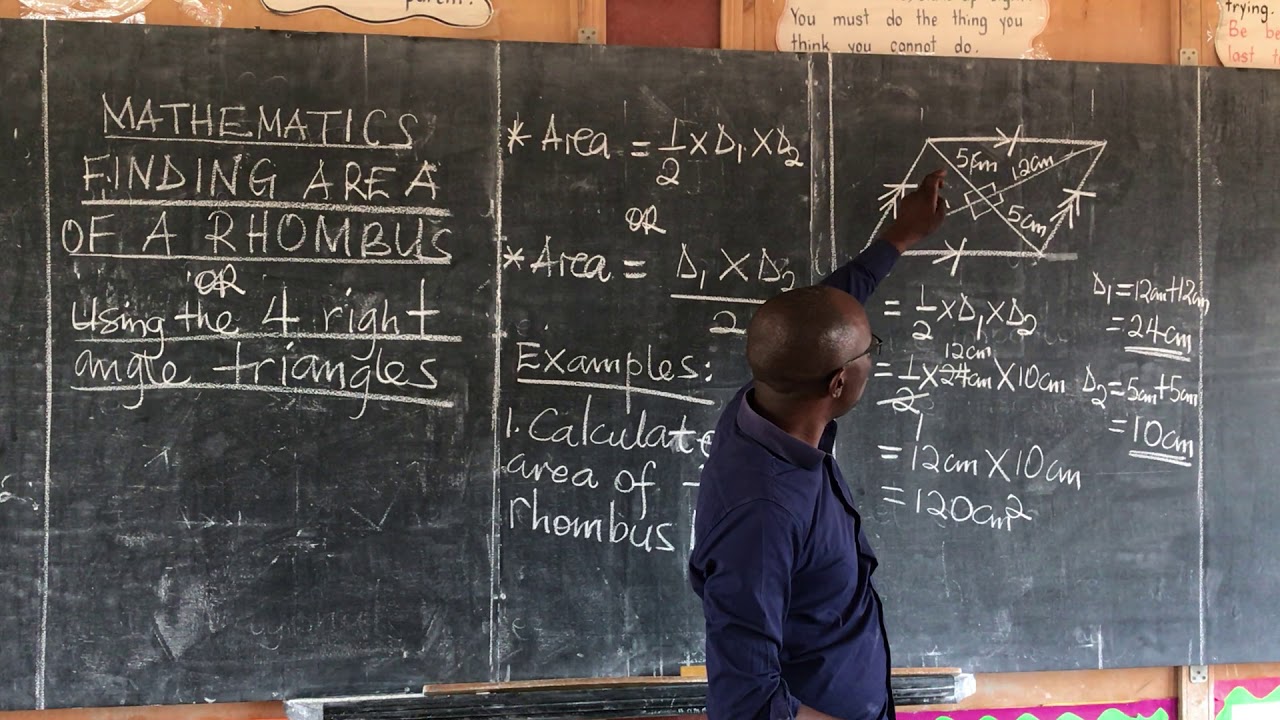 parent.
You must do the thing you
think you cannot do.
trying.
Be be
last to
MATHEMATICS
FINDING AREA
OF A RHOMBUS
OR
Using the 4 right
angle triangles
* Area = 1/2 × D₁ × D₂
OR
* Area = D₁ × D₂
2
Examples:
1. Calculate
area of
rhombus
5cm 12cm
5cm
= 1/2 × D₁ × D₂
12cm
= 1/2 × 24cm × 10cm
1
= 12cm × 10cm
= 120cm²
D₁ = 12cm + 12cm
= 24cm
D₂ = 5cm + 5cm
= 10cm